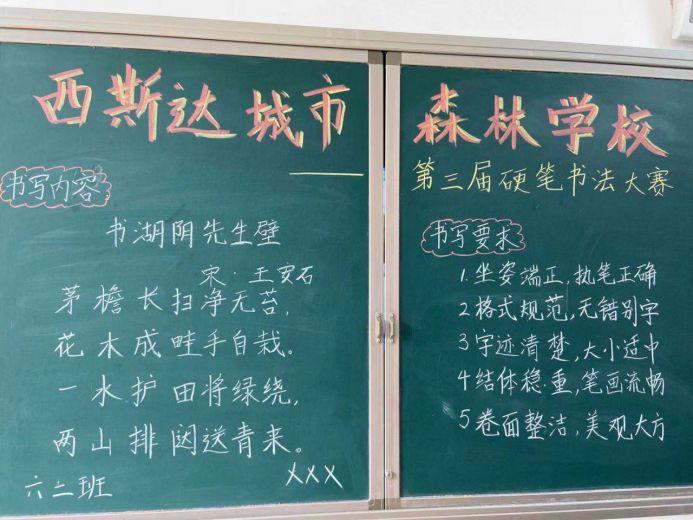 西斯达城市
书写内容
书湖阴先生壁
宋·王安石
茅檐长扫净无苔,
花木成畦手自栽。
一水护田将绿绕,
两山排闼送青来。
六二班
×××
森林学校
第三届硬笔书法大赛
书写要求
1.坐姿端正,执笔正确
2格式规范,无错别字
3字迹清楚,大小适中
4结体稳重,笔画流畅
5卷面整洁,美观大方